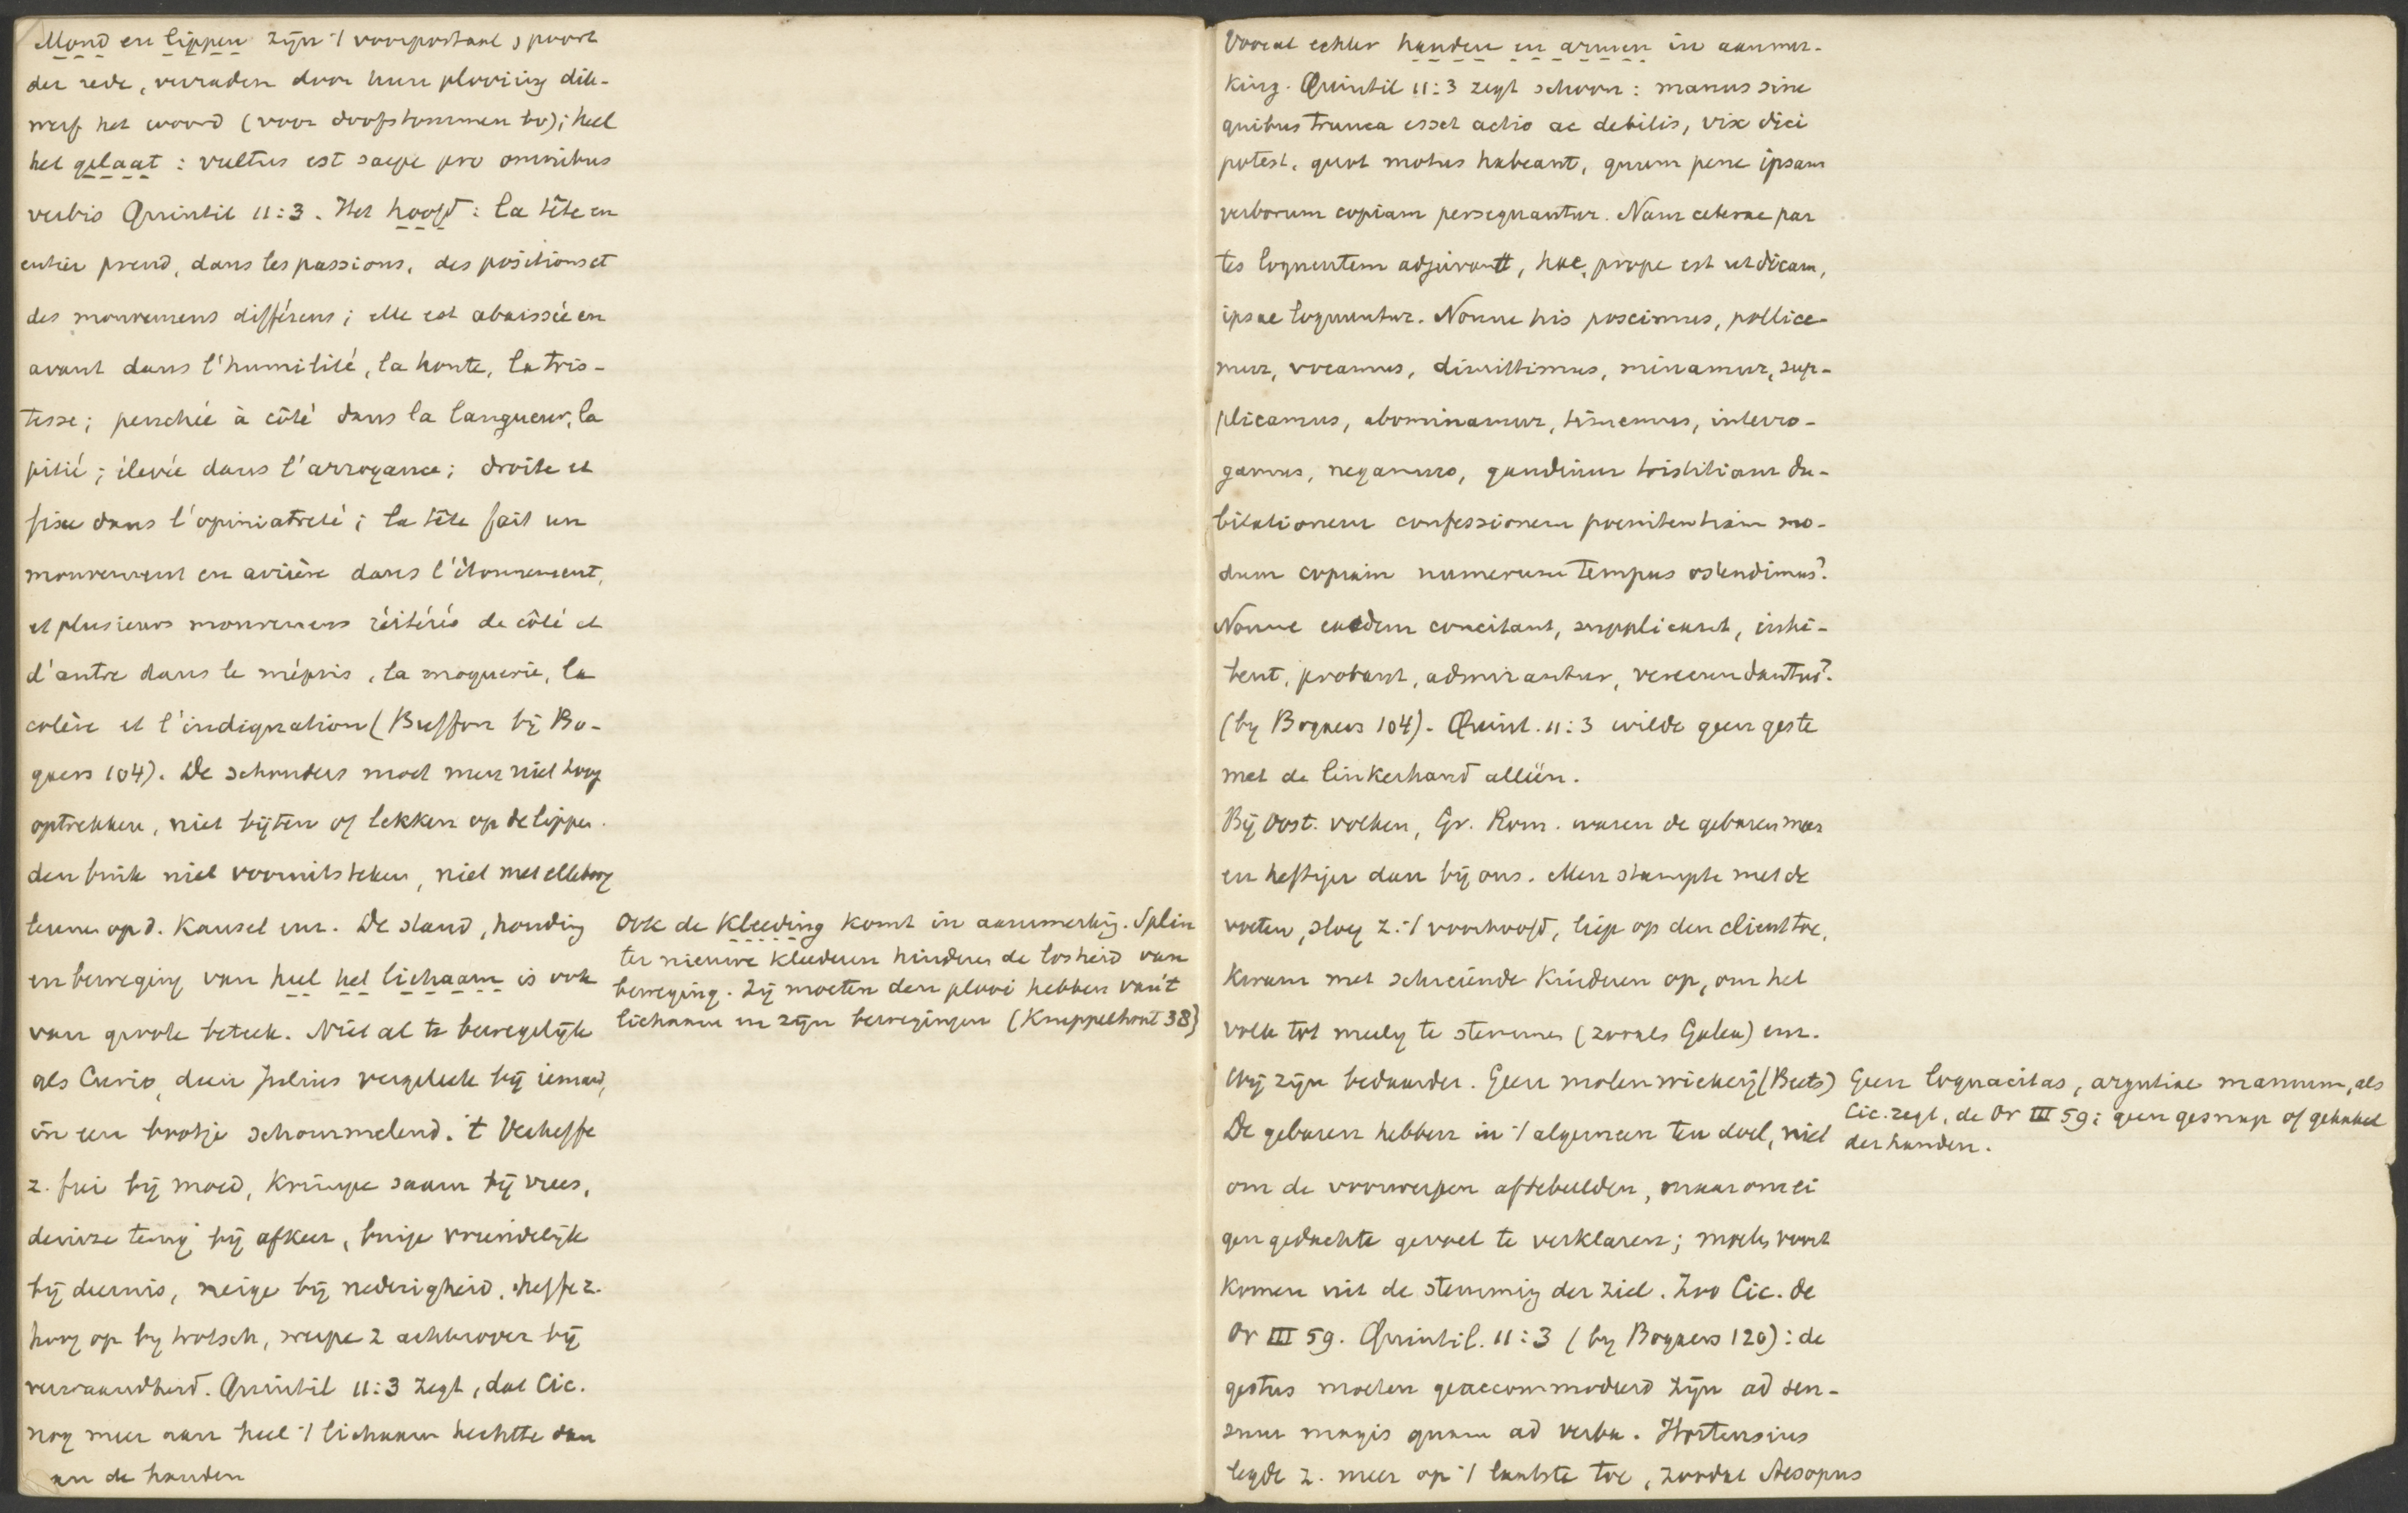 Mond en lippen zijn 't voorportaal, poort
der rede, verraden door hun plooiing dik-
werf het woord (voor doofstommen bv); heel
het gelaat: vultus est saepe pro omnibus
verbis Quintil 11:3. Het hoofd: la tête en
entier prend, dans les passions, des positions et
des mouvemens différens; elle est abaissée en
avant dans l'humilité, la honte, la tris-
tesse; penchée à côté dans la langueur, la
pitié; élevée dans l'arrogance; droite et
fixe dans l'opiniatreté; la tête fait un
mouvement en arrière dans l'étonnement,
et plusieurs mouvemens réitérés de côté et
d'autre dans le mépris, la moquerie, la
colère et l'indignation (Buffon bij Bo-
gaers 104). De schouders moet men niet hoog
optrekken, niet bijten of lekken op de lippen.
den buik niet vooruitsteken, niet met elleboog
leunen op d. kansel enz. De stand, houding
en beweging van heel het lichaam is ook
van groote beteek. Niet al te bewegelijk
als Curio, dien Julius vergeleek bij iemand,
in een bootje schommelend. 't Verheffe
z. fier bij moed, krimpe saam bij vrees,
deinze terug bij afkeer, buige vriendelijk
bij deernis, neige bij nederigheid, heffe z.
hoog op by trotsch, werpe z achterover bij
verwaandheid. Quintil 11:3 zegt, dat Cic.
nog meer aan heel 't lichaam hechtte dan
an de handen
Ook de kleeding komt in aanmerking. Splin
ter nieuwe kleederen hinderen de losheid van
beweging. Zij moeten den plooi hebben van 't
lichaam en zijn bewegingen (Kneppelhout 38)
Vooral echter handen en armen in aanmer-
king. Quintil 11:3 zegt schoon: manus sine
quibus trunca esset actio ac debilis, vix dici
potest, quot motus habeant, quum pene ipsam
verborum copiam persequantur. Nam ceterae par
tes loquentem adjuvant, hae, prope est ut dicam,
ipsae loquuntur. Nonne his poscimus, pollice-
mur, vocamus, dimittimus, minamur, sup-
plicamus, abominamur, timemus, interro-
gamus, negamus, gaudium tristitiam du-
bitationem confessionem poenitentiam mo-
dum copiam numerum tempus ostendimus?
Nonne eaedem concitant, supplicant, inhi-
bent, probant, admirantur, verecundantur?
(by Bogaers 104). Quint. 11:3 wilde geen geste
met de linkerhand alléén.
Bij Oost. volken, Gr. Rom. waren de gebaren meer
en heftiger dan bij ons. Men stampte met de
voeten, sloeg z. 't voorhoofd, liep op den client toe,
kwam met schreiende kinderen op, om het
volk tot meely te stemmen (zooals Galba) enz.
Wij zijn bedaarder. Geen molenwiekerij (Beets)
De gebaren hebben in 't algemeen ten doel, niet
om de voorwerpen aftebeelden, maar om ei
gen gedachte gevoel te verklaren; moeten voort
komen uit de stemming der ziel. Zoo Cic. de
Or III 59. Quintil. 11:3 (by Bogaers 120): de
gestus moeten geaccommodeerd zijn ad sen-
sum magis quam ad verba. Hortensius
legde z. meer op 't laatste toe, zoodat Aesopus
Geen loquacitas, argutiae manuum, als
Cic. zegt, de Or III 59: geen gesnap of gekakel
der handen.